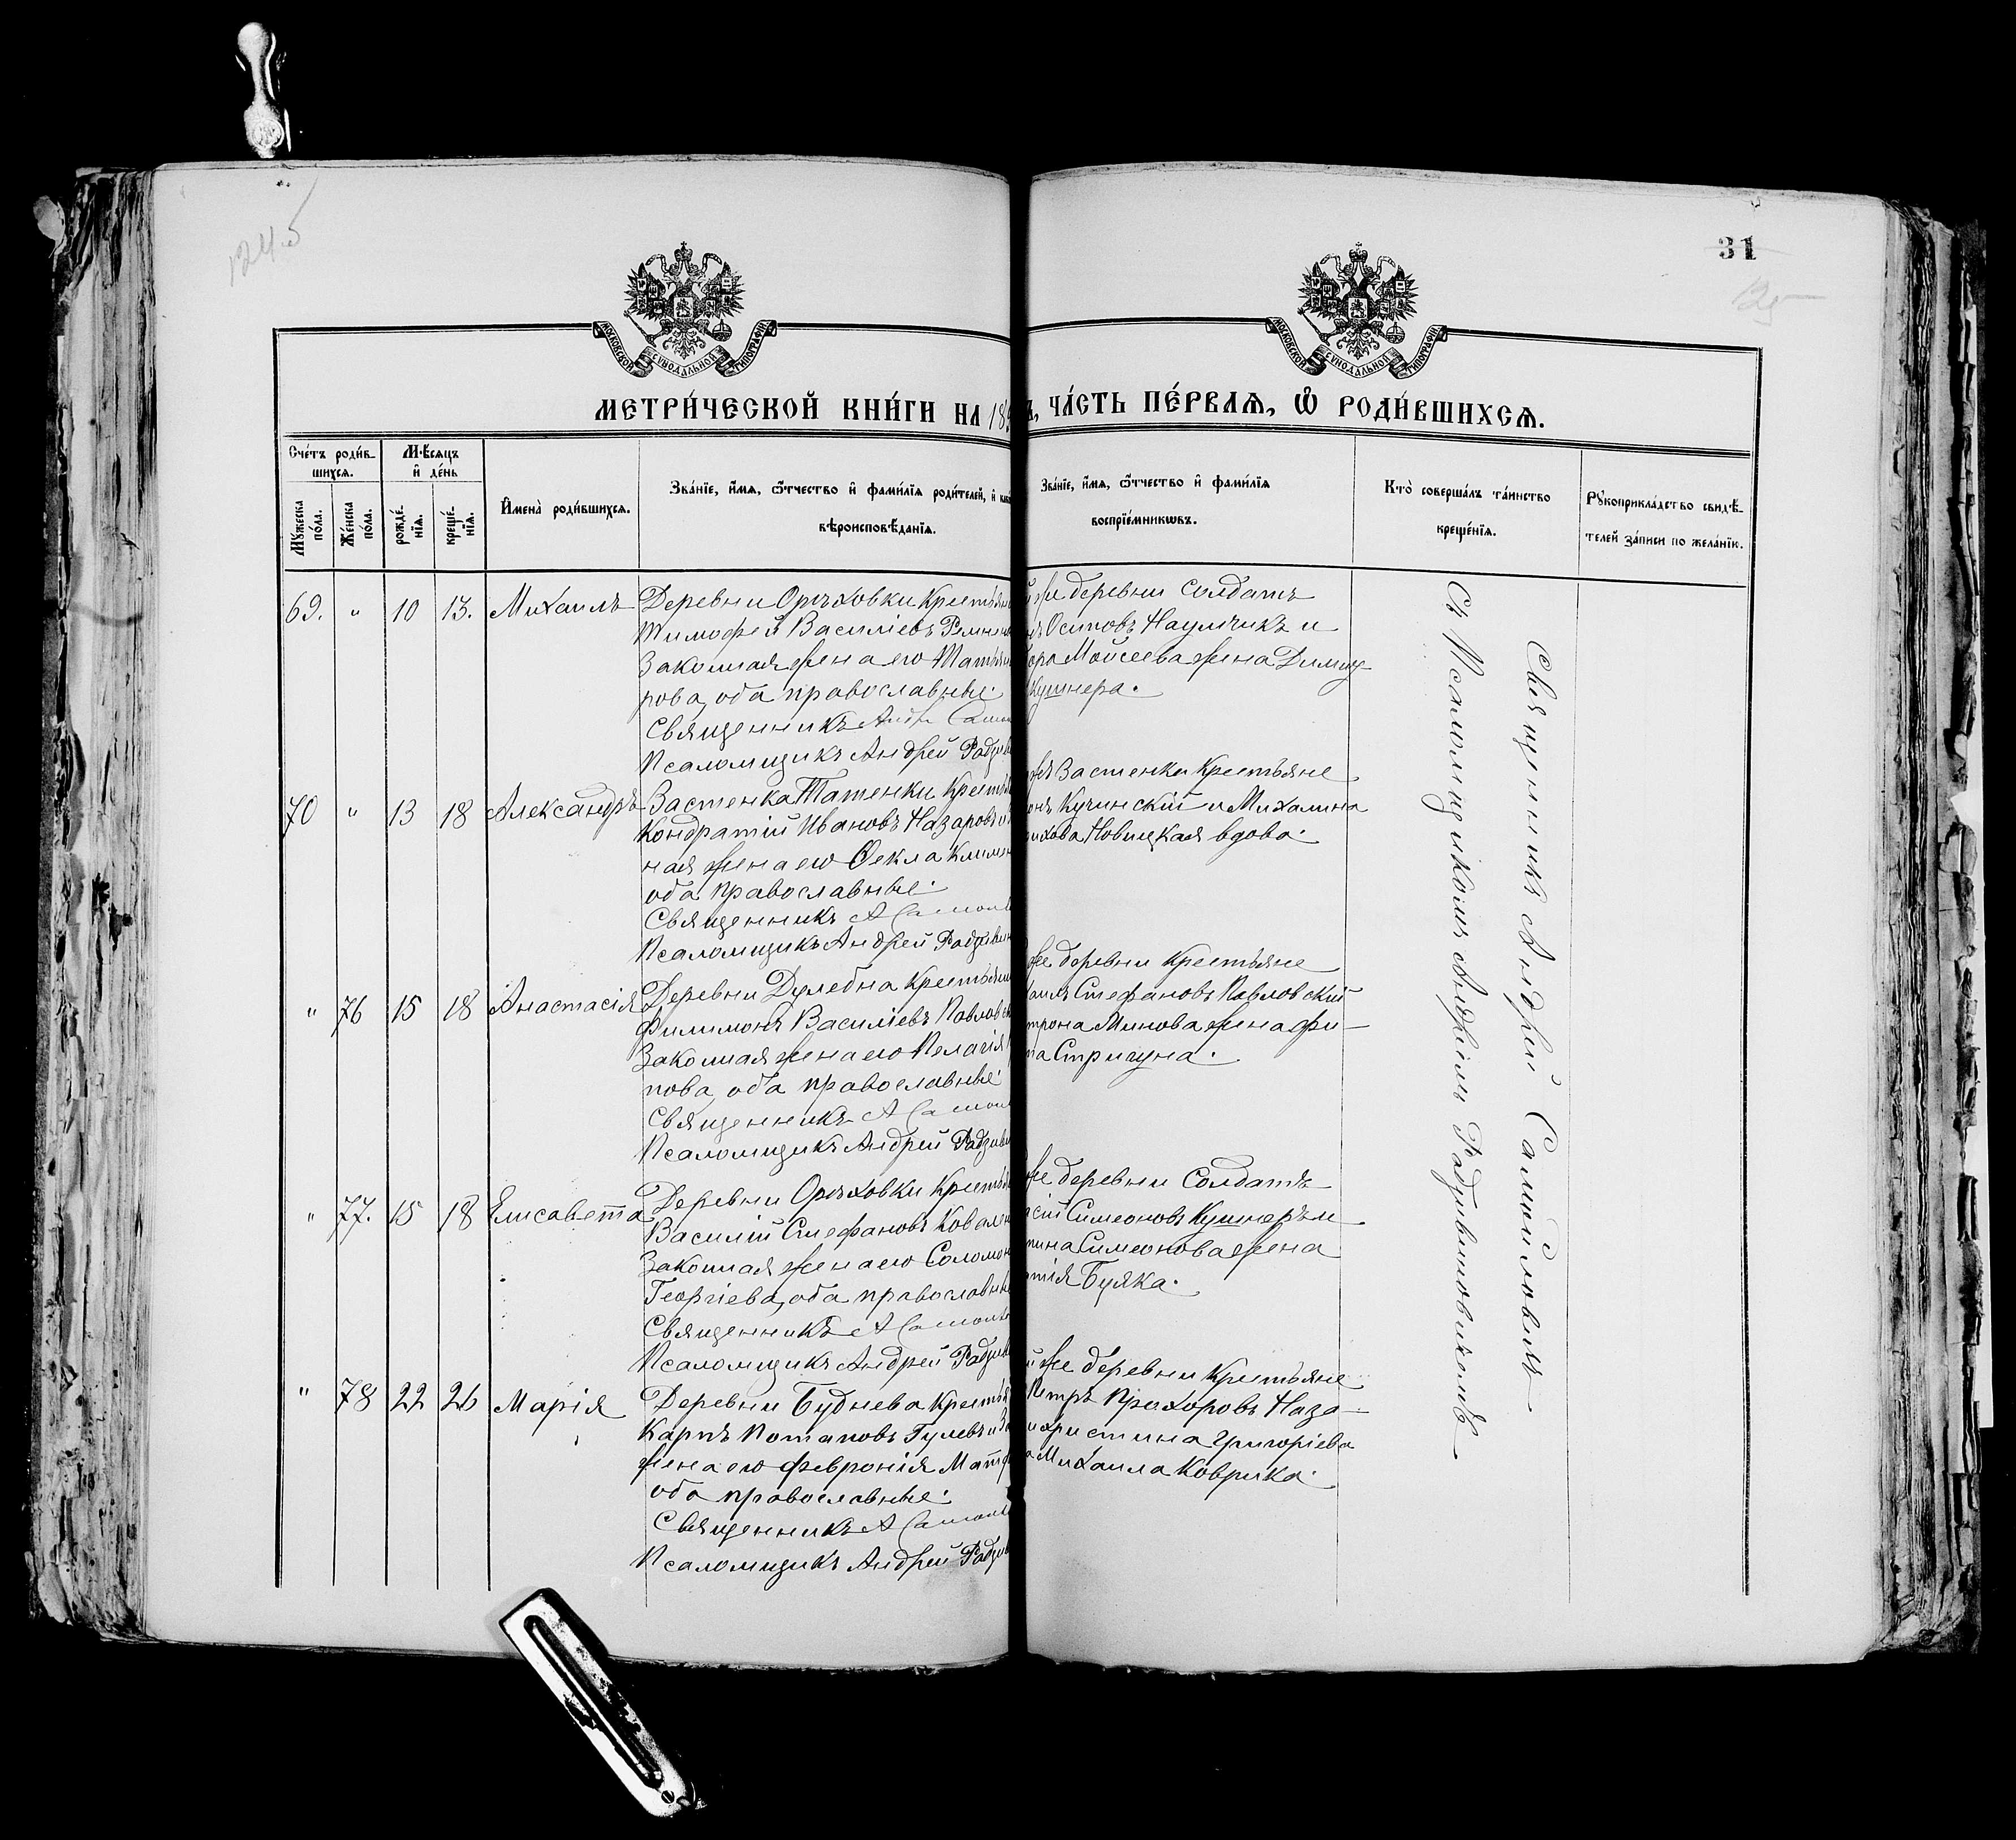 124об
31
125
МОСКОВСКОЙ СѴНОДАЛЬНОЙ ТИПОГРАФІИ
МОСКОВСКОЙ СѴНОДАЛЬНОЙ ТИПОГРАФІИ
МЕТРИ́ЧЕСКОЙ КНИ́ГИ НА 18
ЧА́СТЬ ПЕ́РВАЯ, Ѡ РОДИ́ВШИХСЯ.
Сче́тъ роди́вшихся.
Мꙋ́жеска по́ла.
Же́нска по́ла.
Мѣ́сяцъ и҆ де́нь
рожде́нїя.
креще́нїя.
И҆мена̀ роди́вшихся.
Зва́нїе, и҆́мя, ѻ҆́тчество и҆ фами́лїя роди́телей, и҆
вѣроисповѣ́данїя.
Зва́нїе, и҆́мя, ѻ҆́тчество и҆ фами́лїя
воспрїе́мникѡвъ.
Кто̀ соверша́лъ та́инство
креще́нїя.
Рꙋкоприкла́дство свидѣ́-
телей за́писи по жела́нїю.
69. " 10 13. Михаилъ
Деревни Орѣховки Крестьян
Тимофей Василіевъ
Законная жена его Татьян
рова, оба православные.
Священникъ Андр. Самой
Псаломщикъ Андрей Радзив
же деревни солдатъ
Осиповъ Наумчикъ и
Моисеева жена Димит
Кушнера.
70 " 13 18 Александръ
Застенка Татенки Крестья
Кондратій Ивановъ Назаровъ и
ная жена его Ѳекла Климен
оба православные.
Священникъ А Самойл
Псаломщикъ Андрей Радзивил
Застенка Крестьяне
Кучинскій и Михалина
Новицкая вдова.
" 76 15 18 Анастасія
Деревни Дулебна Крестьян
Филимонъ Василіевъ Павловск
Законная жена его Пелагія
пова, оба православные.
Священникъ А Самой
Псаломщикъ Андрей Радзиви
же деревни Крестьяне
Стефановъ Павловскій
Минова жена Фи-
Стригуна.
" 77. 15 18 Елисавета
Деревни Орѣховки Крестья
Василій Стефановъ Ковален
Законная жена его Соломон
Георгіева, оба православные
Священникъ А Самойл
Псаломщикъ Андрей Радзив
же деревни Солдатъ
Симеоновъ Кушнеръ и
Симеонова жена
Буяка.
" 78 22 26 Марія
Деревни Буднева Крестья
Карпъ Потаповъ Гулевъ и За
жена его Февронія Матф
оба православные.
Священникъ А Самойл
Псаломщикъ Андрей Радзив
же деревни Крестьяне
Петръ Прохоровъ Наза-
и Христина Григоріева
Михаила Коврика.
Священникъ Андрей Самойловичъ
Съ Псаломщикомъ Андреемъ Радзивиловичемъ